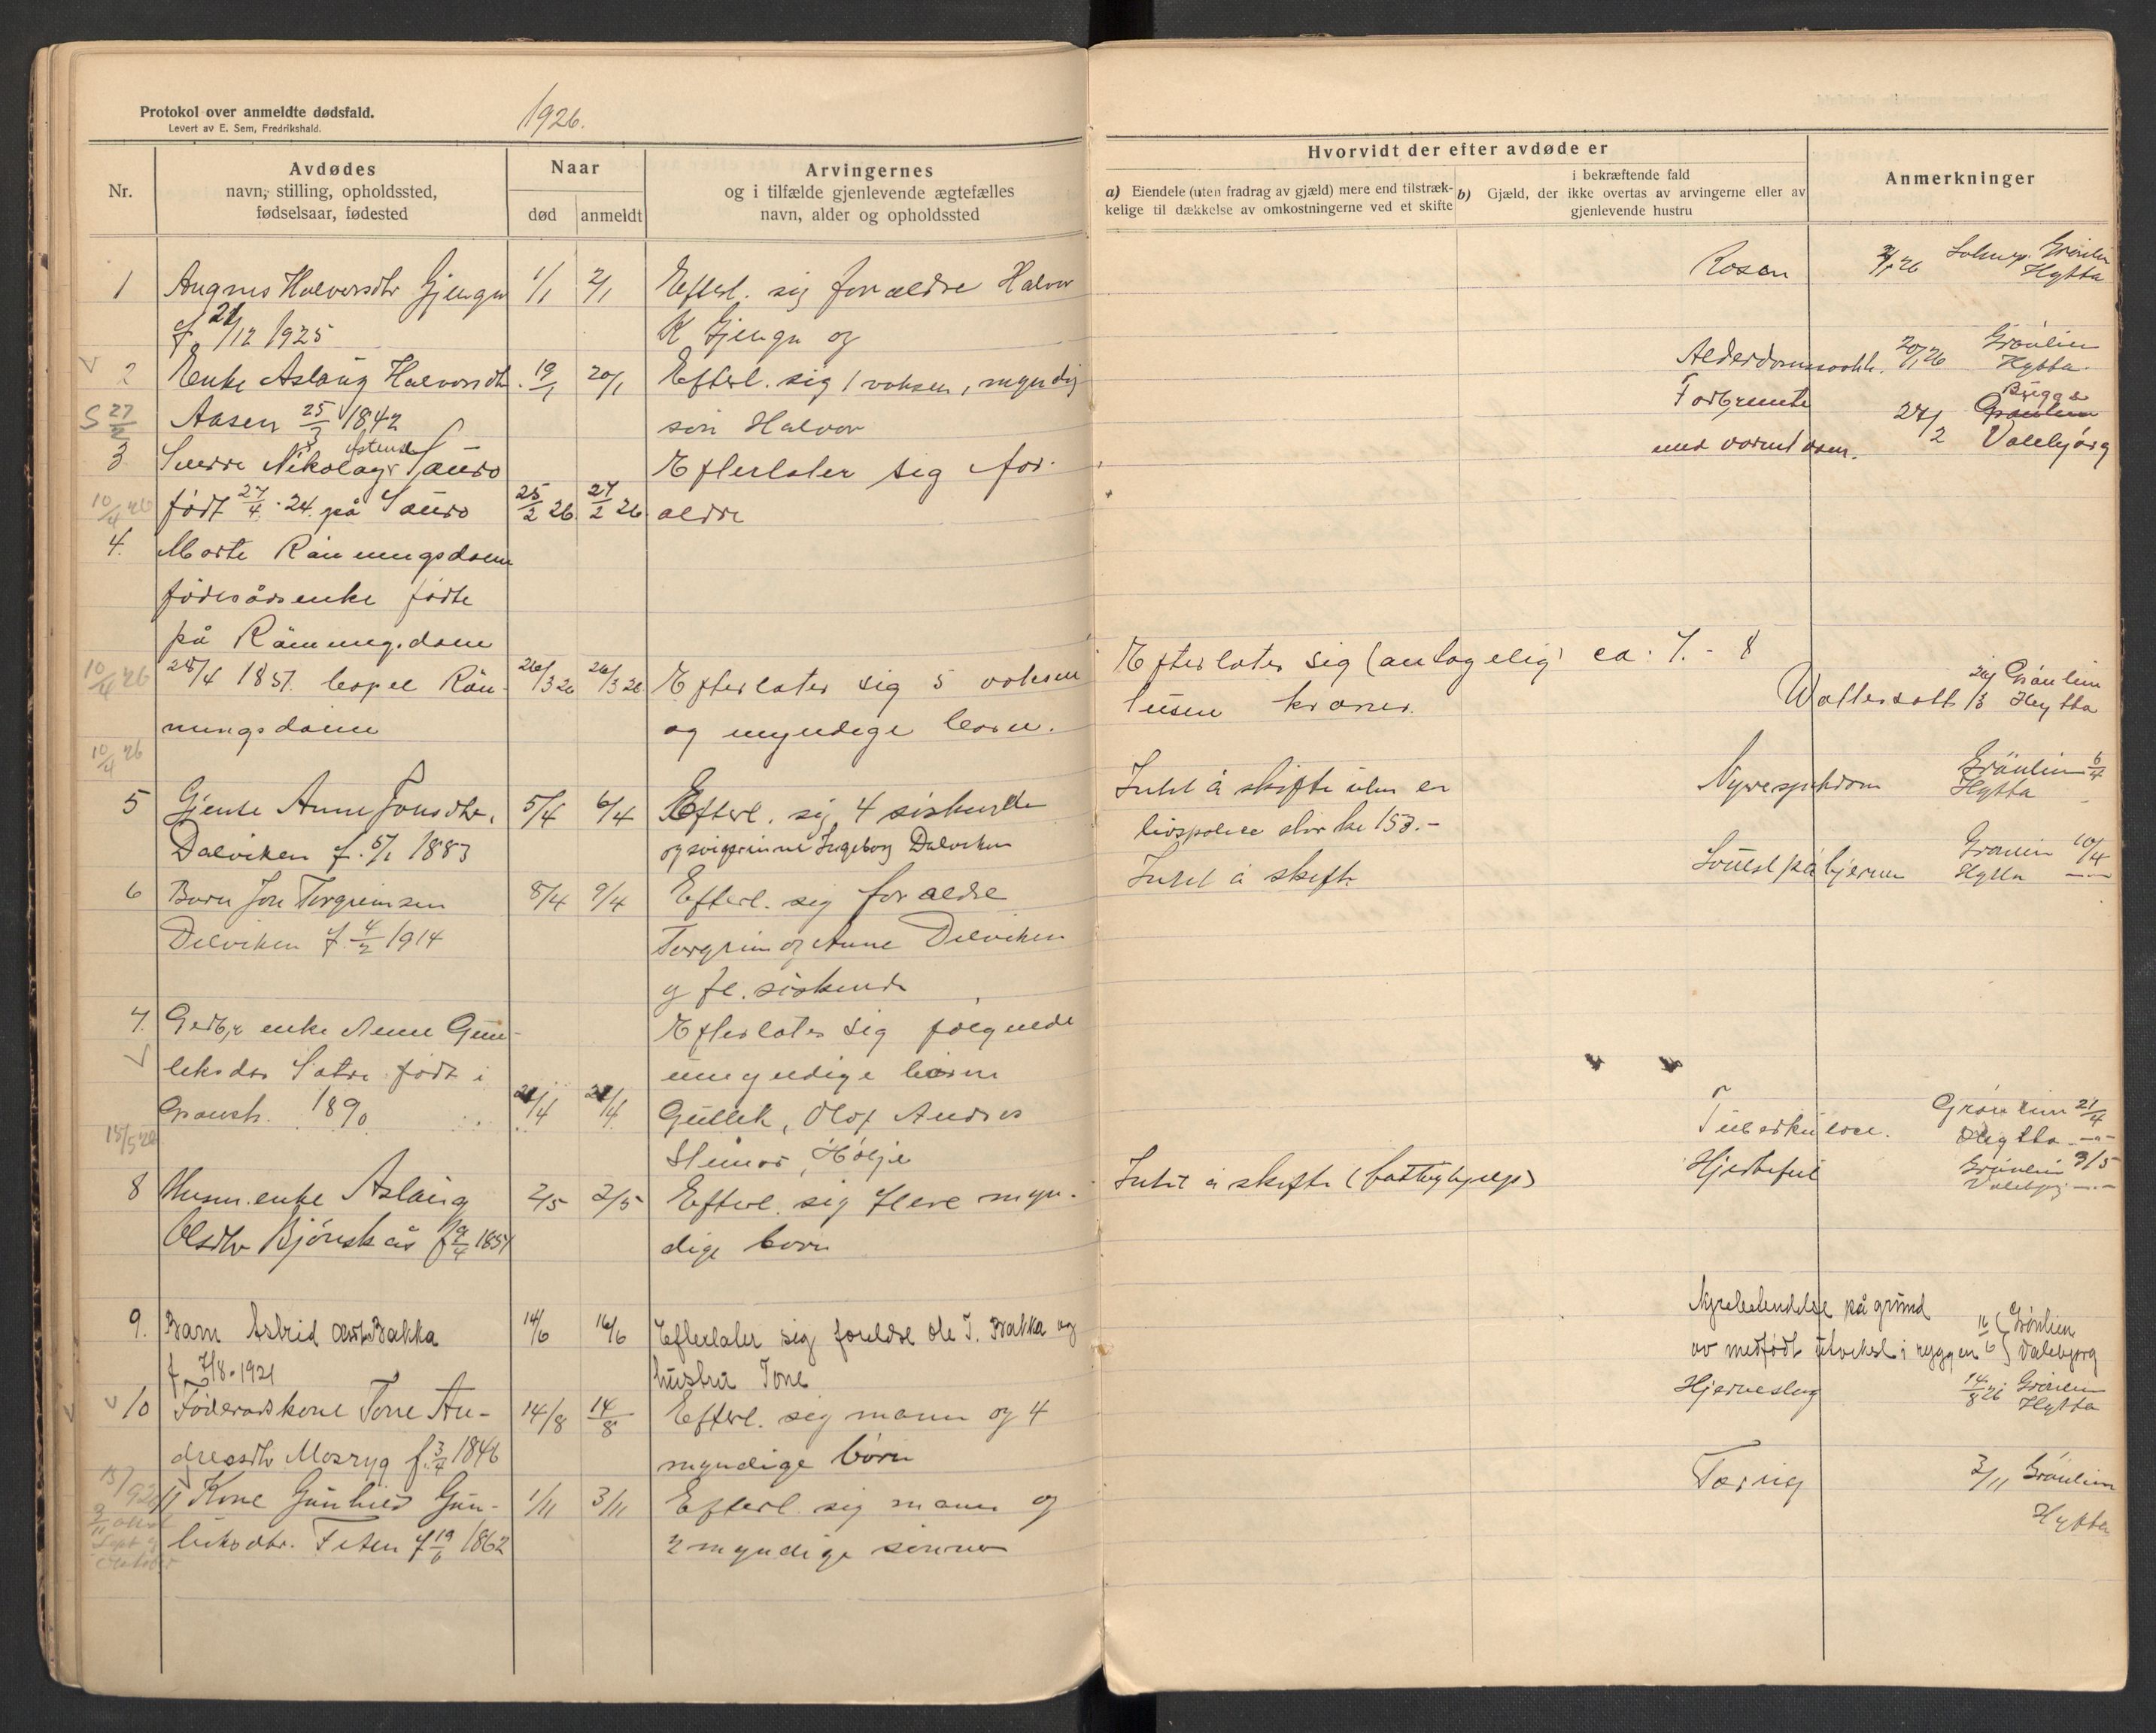 Protokol over anmeldte dødsfald.
Levert av E. Sem, Fredrikshald.
1926.
Nr.
Avdødes
navn, stilling, opholdssted,
fødselsaar, fødested
Naar
død
anmeldt
Arvingernes
og i tilfælde gjenlevende ægtefælles
navn, alder og opholdssted
1 Augnes Halvorsdtr Gjengn 1/1 2/1 Efterl. sig forældre Halvor
f 21/12 1925 K Gjengn og
2 Enke Aslaug Halvorsdtr. 19/1 20/1 Efterl. sig 1 voksen, myndig
S 27/2 Aasen 25/3 1842 søn Halvor
3 Sverre Nikolay Sauro Efterlater sig for-
10/4 26 født 27/4 24 på Sauro 25/2 26 27/2 26 ældre
4. Marte Rånningsdalen
føderådsenke født
på Rånningsdalen
10/4 26 28/4 1851. bopel Rån- 26/3 26 26/3 26 Efterlater sig 5 voksne
ningsdalen og myndige born.
10/4 26
5 Gjente Anne Jonsdtr. 5/4 6/4 Efterl. sig 4 siskende
Dalviken f. 5/1 1883 og svigerinne Ingeborg Dalviken
6 Barn Jon Torgrimsen 8/4 9/4 Efterl. sig forældre
Dalviken f. 4/2 1914 Torgrim og Anne Dalviken
og fl. siskende
7. Gerbr. enke Anne Gun- Efterlater sig følgende
leksdor Satre født i umyndige børn
Gransh. 1890 21/4 21/4 Gullek, Olof Andres
15/5 26 Steinar, Hølje
8 Husm.enke Aslaug 2/5 3/5 Efterl. sig flere myn-
Olsdtr Bjønskås f 9/4 1851 dige born
9. Barn Astrid Olsdtr Bakka 14/6 16/6 Efterlater sig foreldre Ole T. Bakka og
f 7/8-1921 hustru Tone
10 Føderadskone Tone An- 14/8 14/8 Efterl. sig mann og 4
dreasdtr Mosryg f. 3/4 1846 myndige børn
11 Kone Gunhild Gun- 1/11 3/11 Efterl. sig mann og
leiksdtr. Teten f 19/6 1862 2 myndige sønner
Hvorvidt der efter avdøde er
a) Eiendele (uten fradrag av gjæld) mere end tilstræk-
kelige til dækkelse av omkostningerne ved et skifte
i bekræftende fald
b) Gjæld, der ikke overtas av arvingerne eller av
gjenlevende hustru
Anmerkninger
Rosen 2/1 26 Grönlien
Hytta
Alderdomssvakh. 20/1 26 Grönlien
Hytta
Forbrente Bugge
med varmt vann. 27/2 Grönlien Valebjørg
Efterlater sig (antagelig) ca. 7. - 8
tusen kroner. Wattersott 26/3 Grönlien Hytta
Intet å skifte uten en Nyresykdom Grönlien 6/4
livspolice stor kr 153.- Hytta
Intet å skifte Svulst på hjernen Grönlien 10/4
Hytta
Tuberkulose. Grönlien 21/4
Hytta
Intet å skifte (fattighjelp) Hjertefeil Grönlien 3/5
Valebjørg
Nyrebetendelse på grunn
av medfødt utvekst i ryggen 16/6 Grönlien Valebjørg
Hjerneslag 14/8 26 Grönlien
Hytta
Tæring 3/11 Grönlien
Hytta